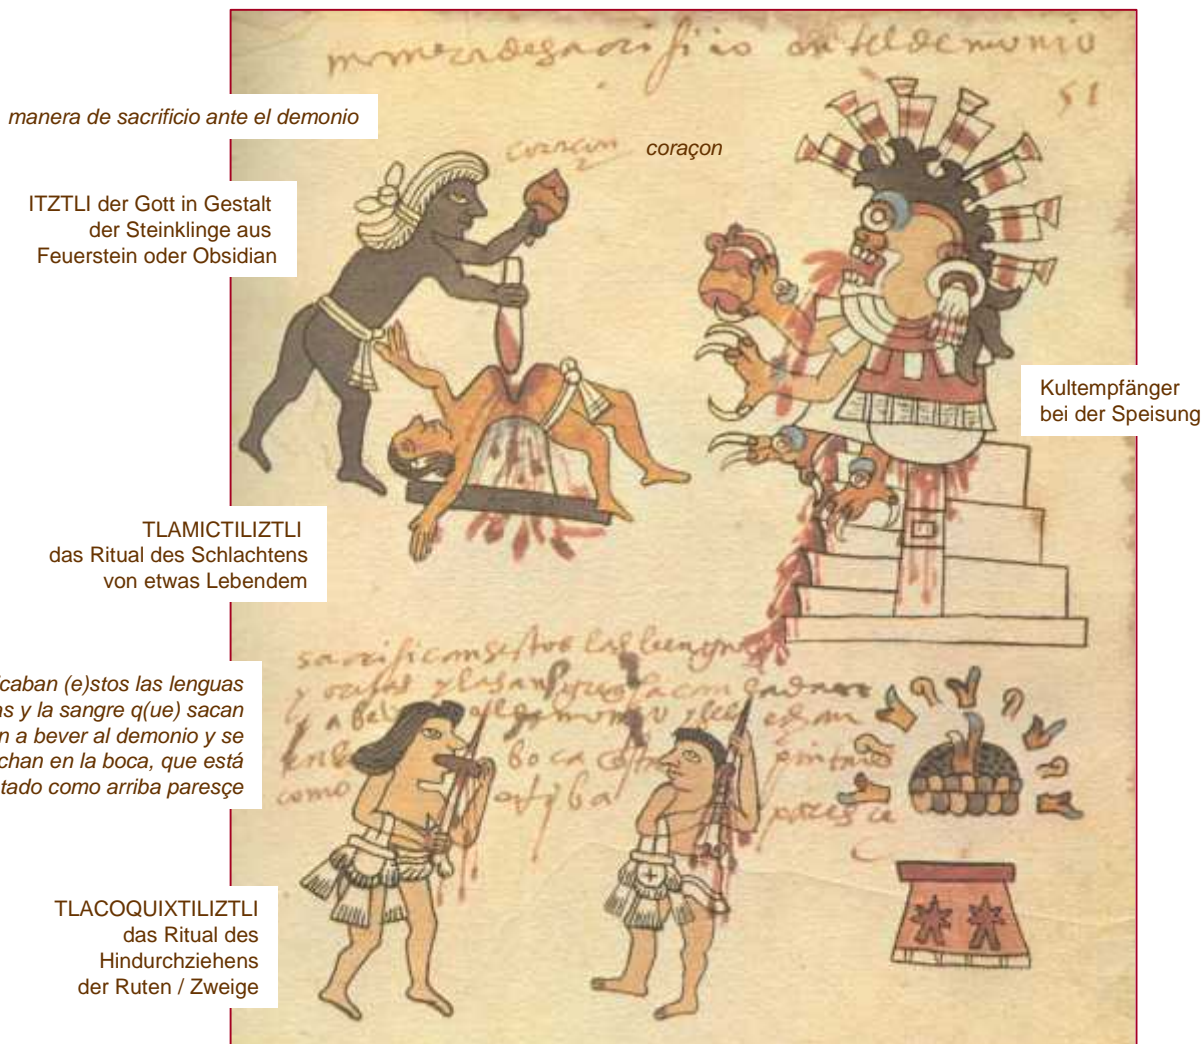 manera de sacrificio antel demonio
51
manera de sacrificio ante el demonio
coraçon
coraçon
ITZTLI der Gott in Gestalt
der Steinklinge aus
Feuerstein oder Obsidian
Kultempfänger
bei der Speisung
TLAMICTILIZTLI
das Ritual des Schlachtens
von etwas Lebendem
las lenguas
y orejas y la sangre sacan
a
boca pintado
como arriba paresce
caban (e)stos las lenguas
as y la sangre q(ue) sacan
n a bever al demonio y se
chan en la boca, que está
tado como arriba paresçe
TLACOQUIXTILIZTLI
das Ritual des
Hindurchziehens
der Ruten / Zweige